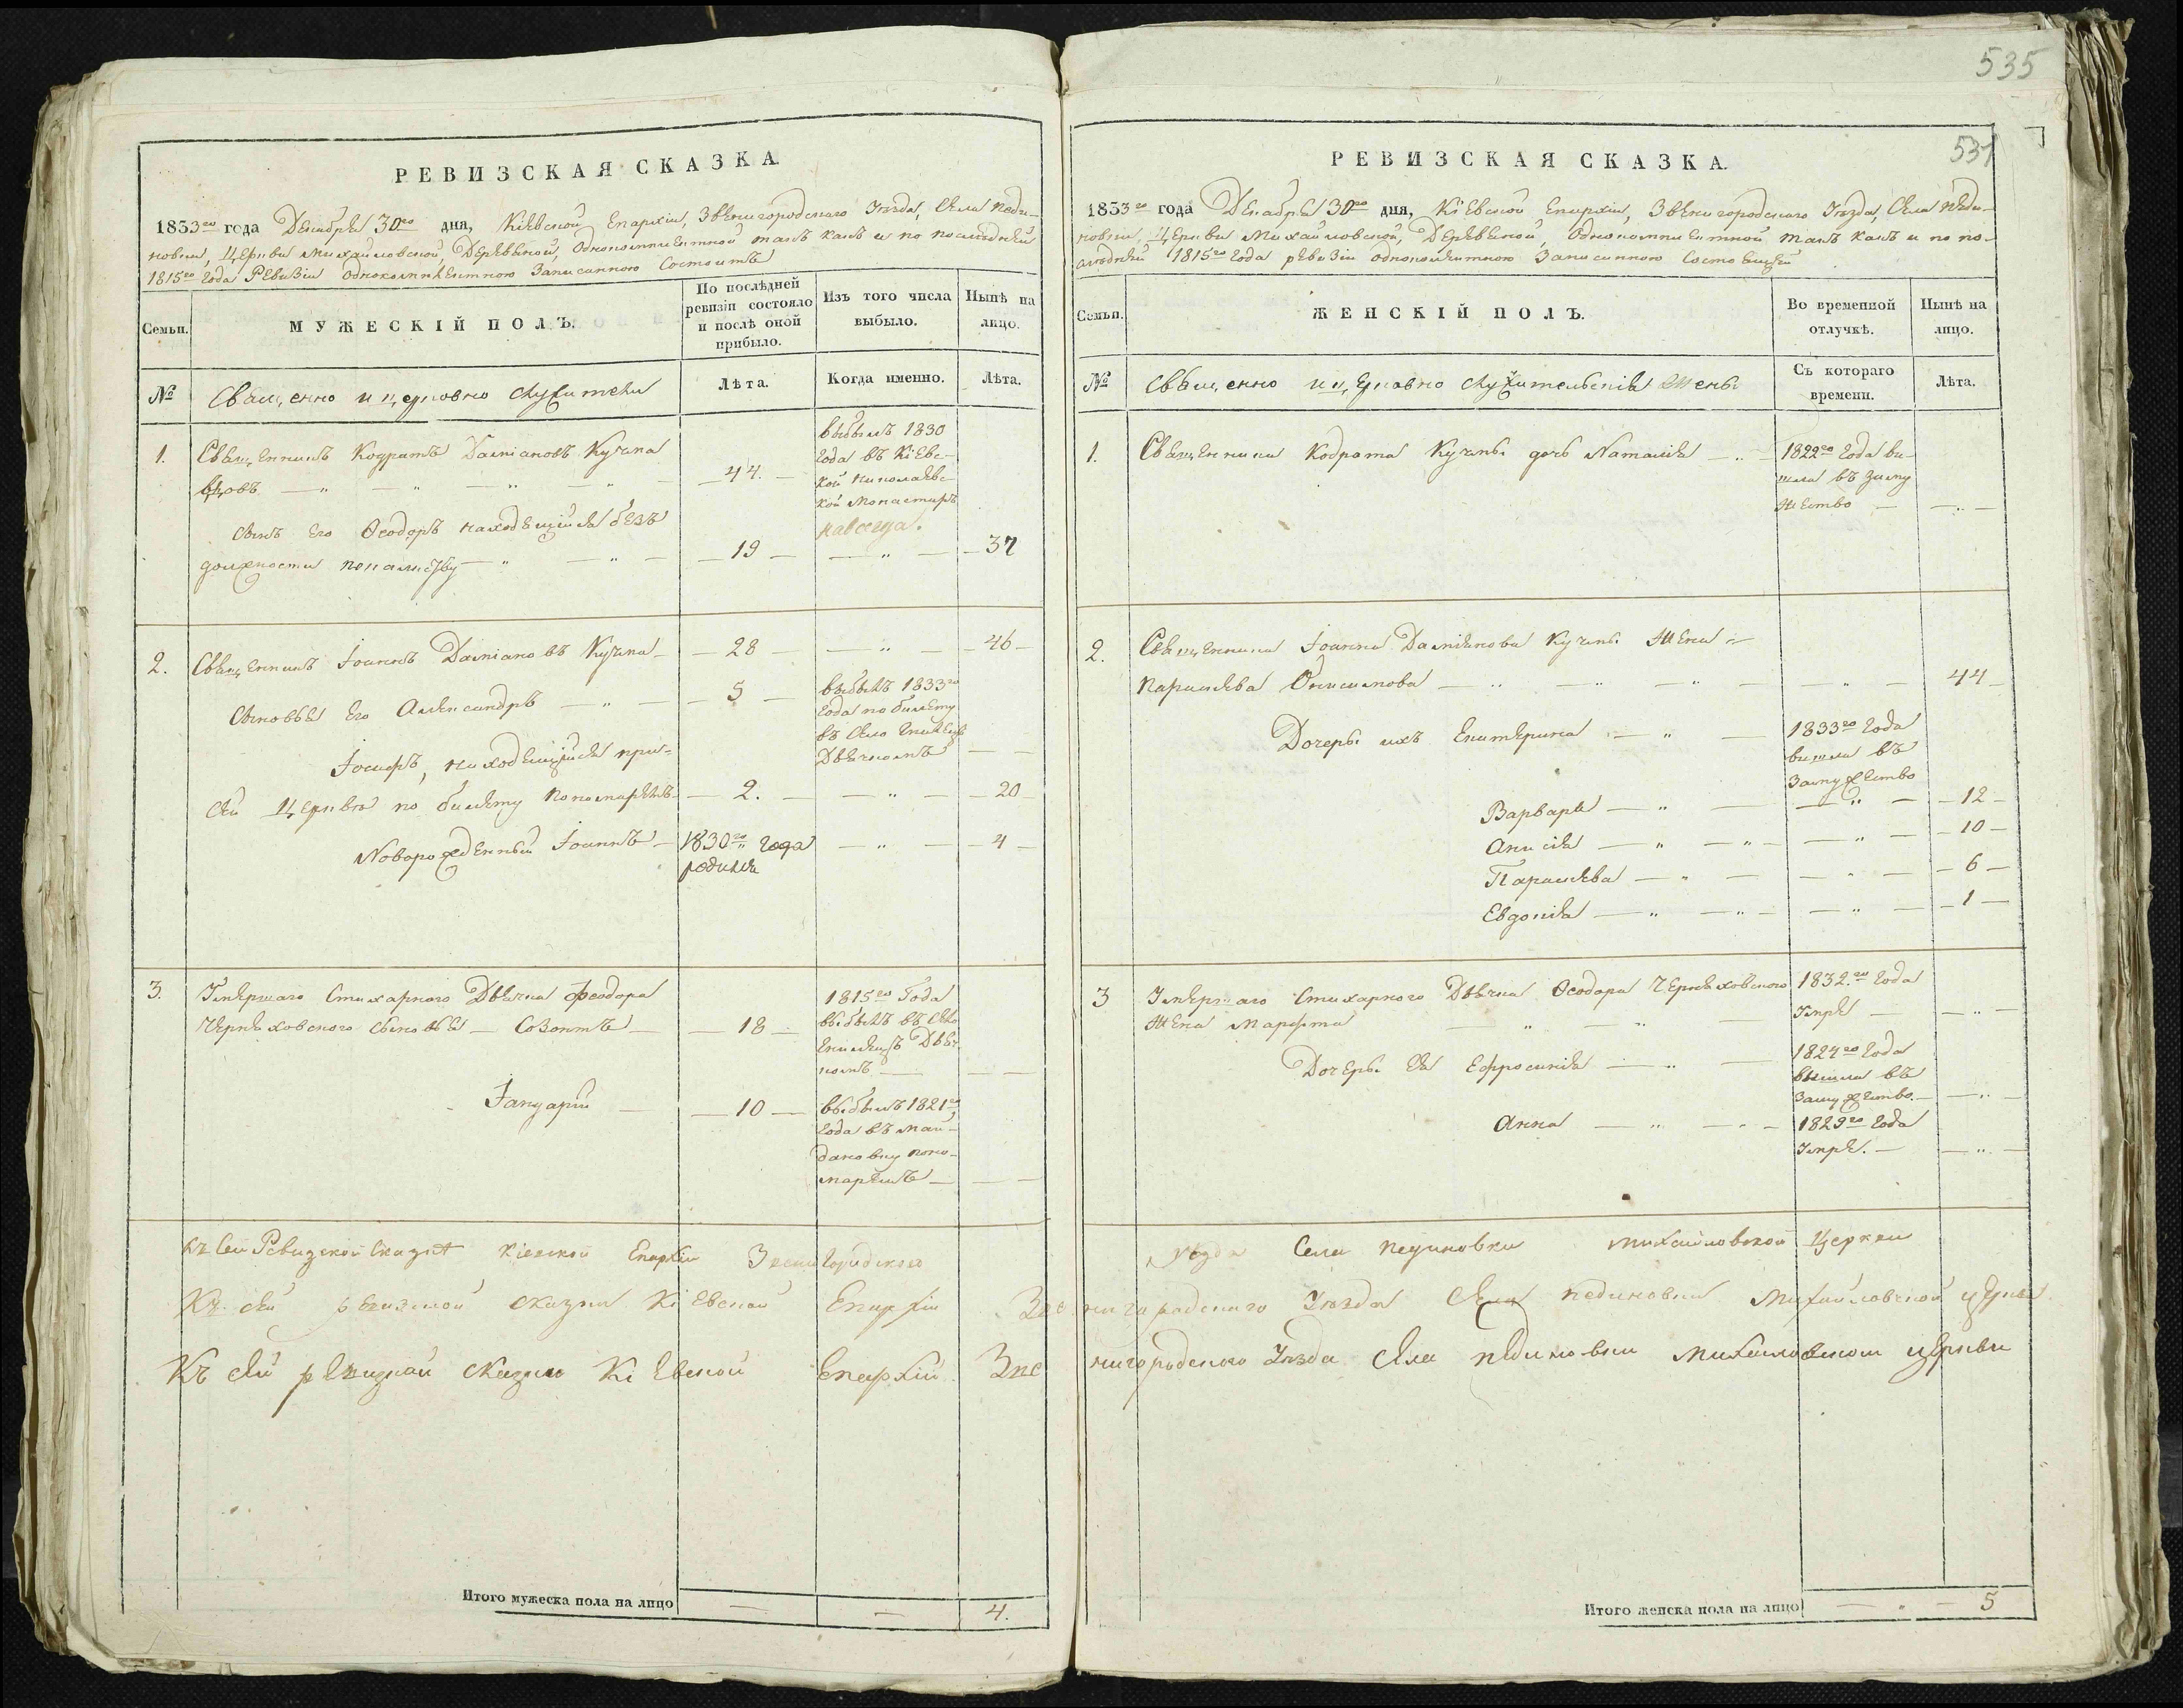 535
РЕВИЗСКАЯ СКАЗКА.
1833го года Декабря 30го дня, Кіевской Епархіи, Звенигородскаго Уезда, Села Педи-
новки, Церкви Михайловской, Деревяной, Однокомплектной такъ какъ и по последней
1815го года Ревизіи однокомплектною Записанною Состоитъ
Семьи.
МУЖЕСКІЙ ПОЛЪ.
По послѣдней
ревизіи состояло
и послѣ оной
прибыло.
Изъ того числа
выбыло.
Нынѣ на
лицо.
№
Священно и церковно служители
Лѣта.
Когда именно.
Лѣта.
1. Священникъ Кодратъ Даміановъ Кучка
44.
выбылъ 1830
года въ Кіевс-
кой Николаевс-
кой Монастырь
навсегда.
сынъ его Ѳеодоръ находящійся безъ
должности
19
37
2. Священникъ Іоаннъ Даміановъ Кучка
28
46
Сыновья его Александръ
5
выбылъ 1833го
года по билету
въ село
Дьячкомъ
Іосифъ, находящійся при
сей Церкве по билету Пономаремъ
2.
20
Новорожденный Іоаннъ
1830го года
родился
4
3. Умершаго Стихарного Дьячка Феодора
Черняховского сыновья Созонтъ
18
1815го Года
выбылъ въ село
Дьяч-
комъ
Іануарій
10
выбылъ 1821го
года въ Май-
дановку поно-
маремъ
Къ Сей Ревизской Сказкѣ Кіевской Епархіи Звенигородскаго
Къ сей ревизской сказки Кіевской Епархіи Зве
Къ сей ревизкой сказки Кіевской Епархіи Зве
Итого мужеска пола на лицо
4.
531
РЕВИЗСКАЯ СКАЗКА.
1833го года Декабря 30го дня, Кіевской Епархіи, Звенигородскаго Уезда, Села Педи-
новки, Церкви Михайловской, Деревяной, Однокомплектной такъ какъ и по по-
следней 1815го года ревизіи однокомплектною Записанною Состоящей
Семьи.
ЖЕНСКІЙ ПОЛЪ.
Во временной
отлучкѣ.
Нынѣ на
лицо.
№
Священно и церковно служительскія Жены
Съ котораго
времени.
Лѣта.
1. Священника Кодрата Кучки дочь Наталія
1822го года ви-
шла въ заму
жество
2. Священника Іоанна Даміянова Кучки Жена
Параскева Онисимова
44
Дочеры ихъ Екатерина
1833го года
вишла въ
Замужество
Варвара
12
Анисія
10
Параскева
6
Евдокія
1
3 Умершаго Стихарного Дьячка Ѳеодора Черняховского
Жена Марфта
1832го года
умре
Дочеры ея Ефросинія
1824го года
вышла въ
Замужество.
Анна
1829го года
Умре.
уезда Села Пединовки Михайловской Церкви
нигородскаго Уезда Села Пединовки Михайловской церкви
нигородского Уезда Села Пединовки Михайловской церкви
Итого женска пола на лицо
5